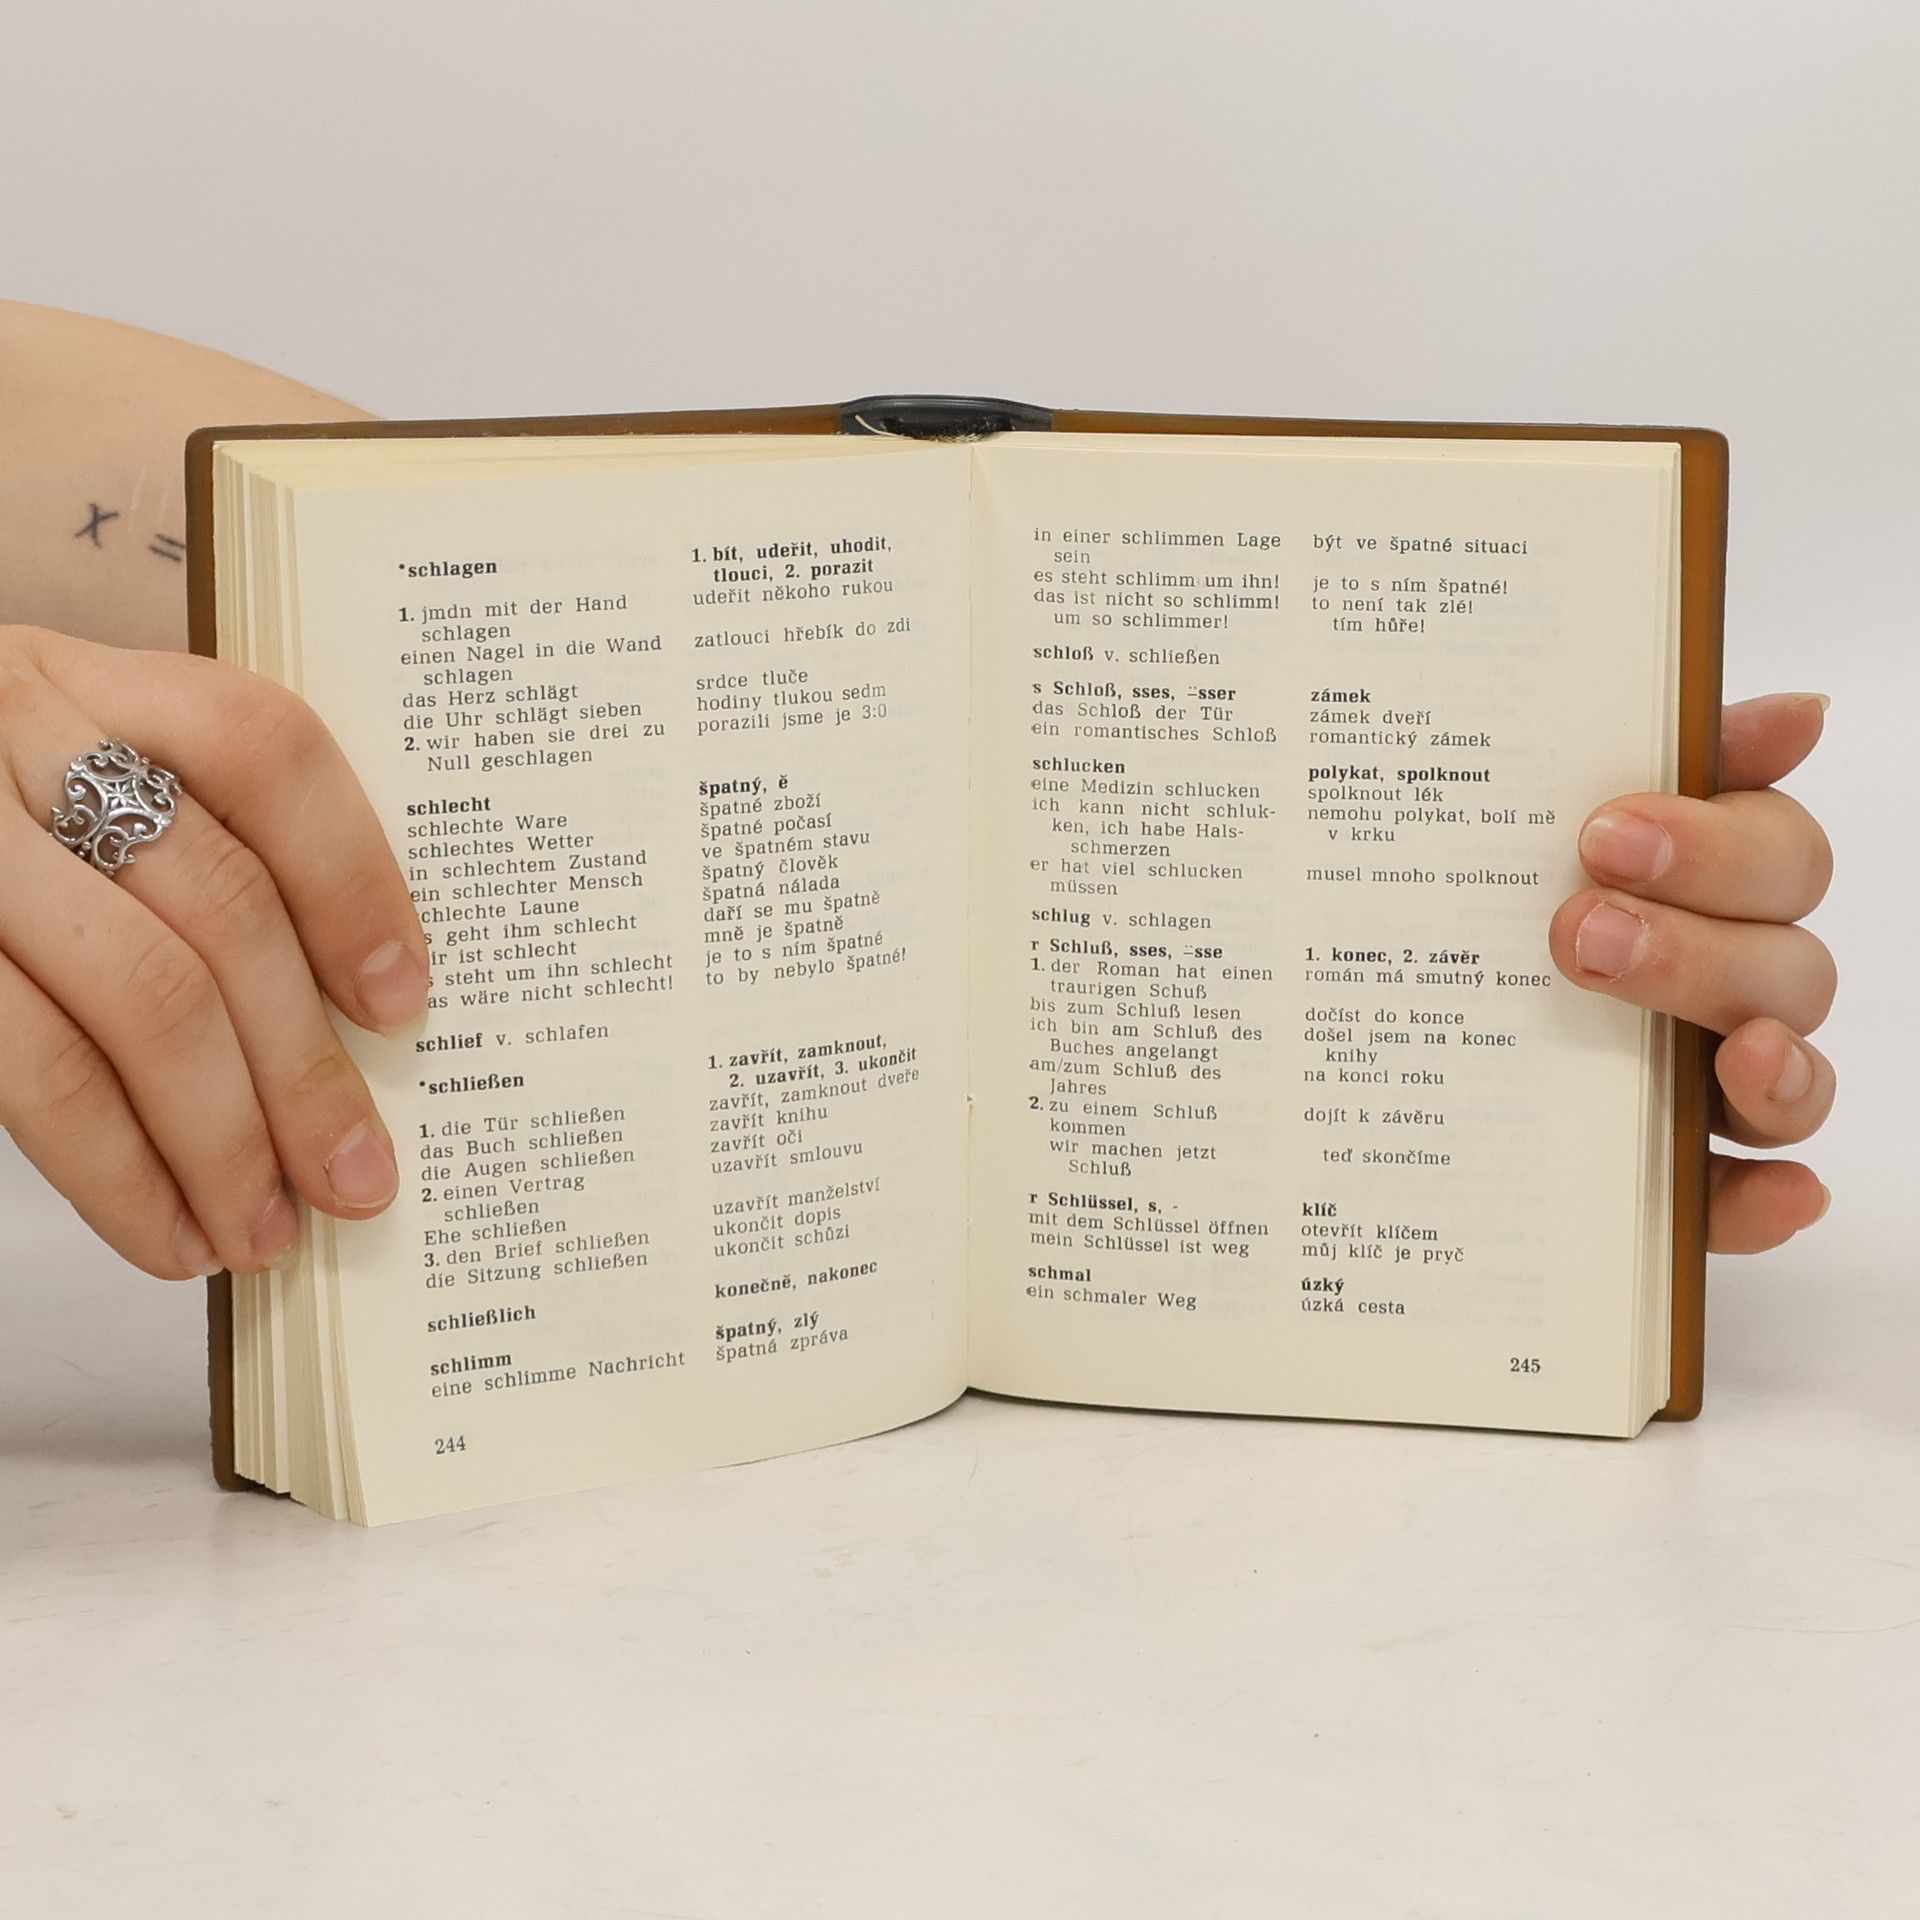 x =
*schlagen
1. jmdn mit der Hand
schlagen
einen Nagel in die Wand
schlagen
das Herz schlägt
die Uhr schlägt sieben
2. wir haben sie drei zu
Null geschlagen
schlecht
schlechte Ware
schlechtes Wetter
in schlechtem Zustand
ein schlechter Mensch
chlechte Laune
s geht ihm schlecht
ir ist schlecht
s steht um ihn schlecht
as wäre nicht schlecht!
schlief v. schlafen
*schließen
1. die Tür schließen
das Buch schließen
die Augen schließen
2. einen Vertrag
schließen
Ehe schließen
3. den Brief schließen
die Sitzung schließen
schließlich
schlimm
eine schlimme Nachricht
244
1. bít, udeřit, uhodit,
tlouci, 2. porazit
udeřit někoho rukou
zatlouci hřebík do zdi
srdce tluče
hodiny tlukou sedm
porazili jsme je 3:0
špatný, ě
špatné zboží
špatné počasí
ve špatném stavu
špatný člověk
špatná nálada
daří se mu špatně
mně je špatně
je to s ním špatné
to by nebylo špatné!
1. zavřít, zamknout,
2. uzavřít, 3. ukončit
zavřít, zamknout dveře
zavřít knihu
zavřít oči
uzavřít smlouvu
uzavřít manželství
ukončit dopis
ukončit schůzi
konečně, nakonec
špatný, zlý
špatná zpráva
in einer schlimmen Lage
sein
es steht schlimm um ihn!
das ist nicht so schlimm!
um so schlimmer!
schloß v. schließen
s Schloß, sses, ⸚sser
das Schloß der Tür
ein romantisches Schloß
schlucken
eine Medizin schlucken
ich kann nicht schluk-
ken, ich habe Hals-
schmerzen
er hat viel schlucken
müssen
schlug v. schlagen
r Schluß, sses, ⸚sse
1. der Roman hat einen
traurigen Schuß
bis zum Schluß lesen
ich bin am Schluß des
Buches angelangt
am/zum Schluß des
Jahres
2. zu einem Schluß
kommen
wir machen jetzt
Schluß
r Schlüssel, s, -
mit dem Schlüssel öffnen
mein Schlüssel ist weg
schmal
ein schmaler Weg
být ve špatné situaci
je to s ním špatné!
to není tak zlé!
tím hůře!
zámek
zámek dveří
romantický zámek
polykat, spolknout
spolknout lék
nemohu polykat, bolí mě
v krku
musel mnoho spolknout
1. konec, 2. závěr
román má smutný konec
dočíst do konce
došel jsem na konec
knihy
na konci roku
dojít k závěru
teď skončíme
klíč
otevřít klíčem
můj klíč je pryč
úzký
úzká cesta
245